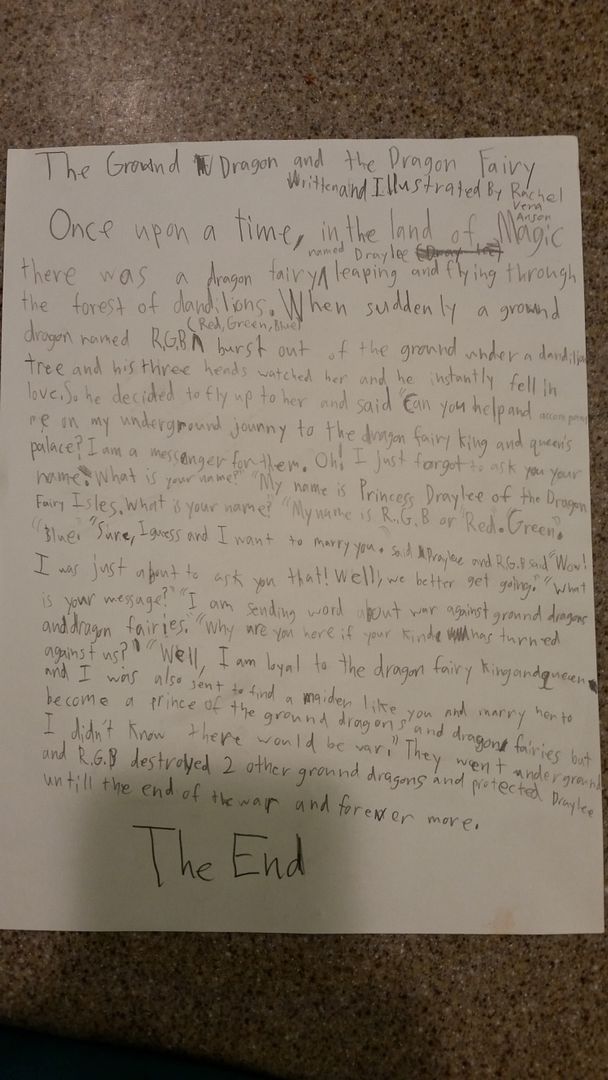 The Ground Dragon and the Dragon Fairy
Written and Illustrated By Rachel
Vera
Anson
Once upon a time, in the land of Magic
there was a dragon fairy ^ named Draylee leaping and flying through
the forest of dandilions. When suddenly a ground
dragon named R.G.B ^ (Red, Green, Blue) burst out of the ground under a dandilion
tree and his three heads watched her and he instantly fell in
love. So he decided to fly up to her and said "Can you help and accompany
me on my underground jounny to the dragon fairy king and queen's
palace? I am a messenger for them. Oh! I just forgot to ask you your
name. What is your name?" "My name is Princess Draylee of the Dragon
Fairy Isles. What is your name?" "My name is R.G.B or "Red. Green.
"Blue." "Sure, I guess and I want to marry you. said Draylee and R.G.B said "Wow!
I was just about to ask you that! Well, we better get going." "What
is your message?" "I am sending word about war against ground dragons
and dragon fairies." "Why are you here if your kinde has turned
against us?" "Well, I am loyal to the dragon fairy king and queen
and I was also sent to find a maiden like you and marry her to
become a prince of the ground dragons and dragon fairies but
I didn't know there would be war." They went underground
and R.G.B destroyed 2 other ground dragons and protected Draylee
untill the end of the war and forever more.
The End